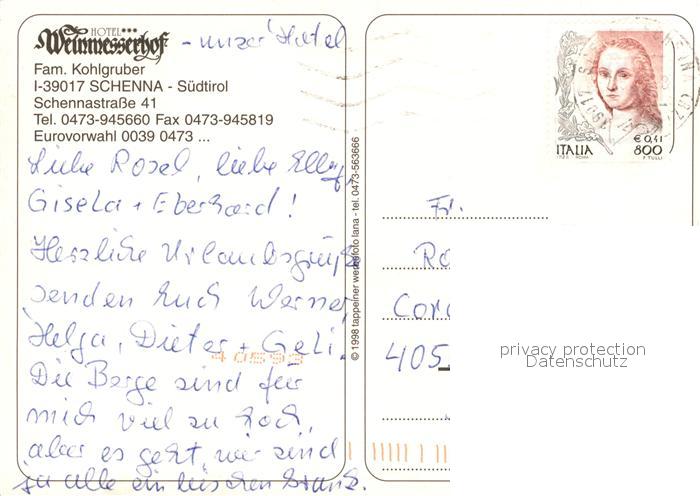 HOTEL***
Weinmesserhof - unser Hotel
Fam. Kohlgruber
I-39017 SCHENNA - Südtirol
Schennastraße 41
Tel. 0473-945660 Fax 0473-945819
Eurovorwahl 0039 0473 ...
Liebe Rosel, liebe Elly,
Gisela + Eberhard!
Herzliche Urlaubsgrüße
senden Euch Werner,
Helga, Dieter + Geli.
40593
Die Berge sind für
mich viel zu hoch,
aber es geht, wir sind
ja alle ein bischen krank.
© 1998 tappeiner werbefoto lana - tel. 0473-563666
€ 0,41
ITALIA 800
F. TULLI
Fr.
Ro
405
privacy protection
Datenschutz